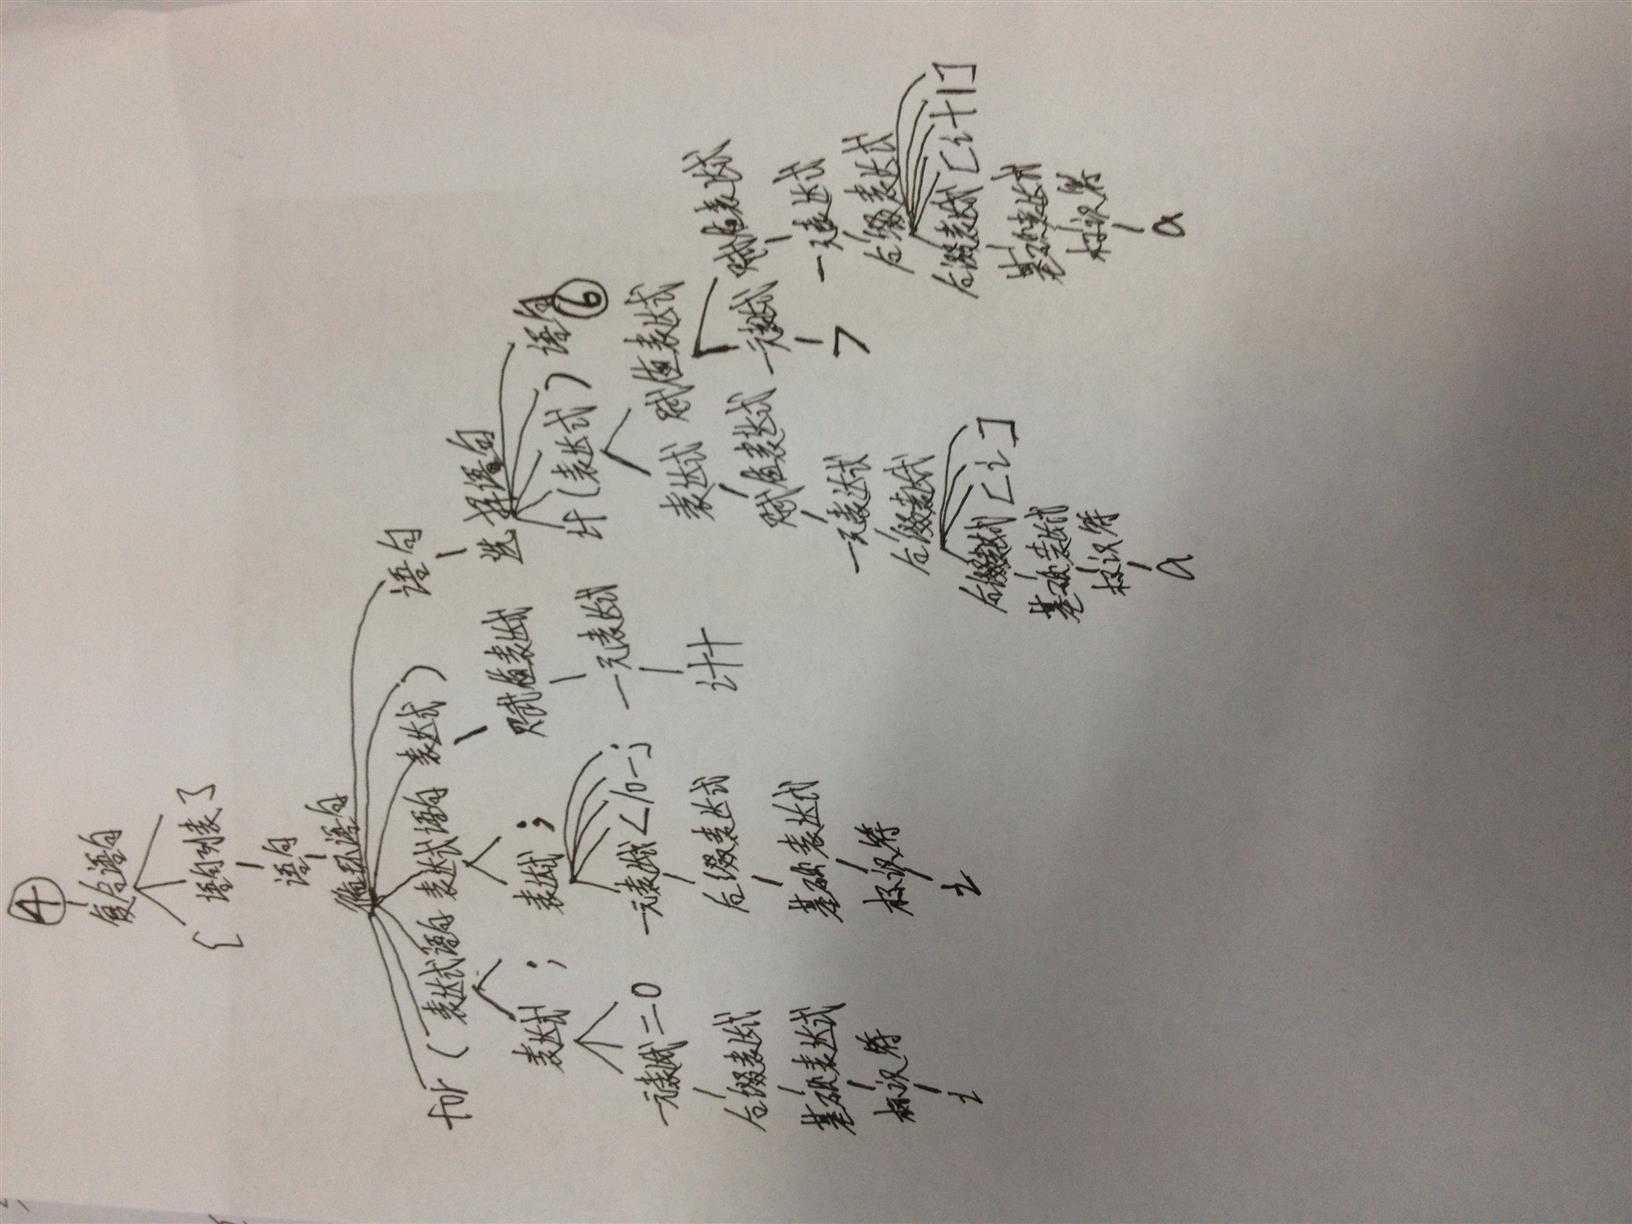 ④
复合语句
{ 语句列表 }
语句
循环语句
for ( 表达式语句 表达式语句 表达式 ) 语句
表达式 ; 表达式 ; 赋值表达式 选择语句
一元表达式 = 0 一元表达式 < 10 - j 一元表达式 if ( 表达式 ) 语句 ⑥
后缀表达式 后缀表达式 i++ 表达式 赋值表达式
基础表达式 基础表达式 赋值表达式 一元表达式 赋值表达式
标识符 标识符 一元表达式 > 一元表达式
i i 后缀表达式 后缀表达式
后缀表达式 [ i ] 后缀表达式 [ i + 1 ]
基础表达式 基础表达式
标识符 标识符
a a